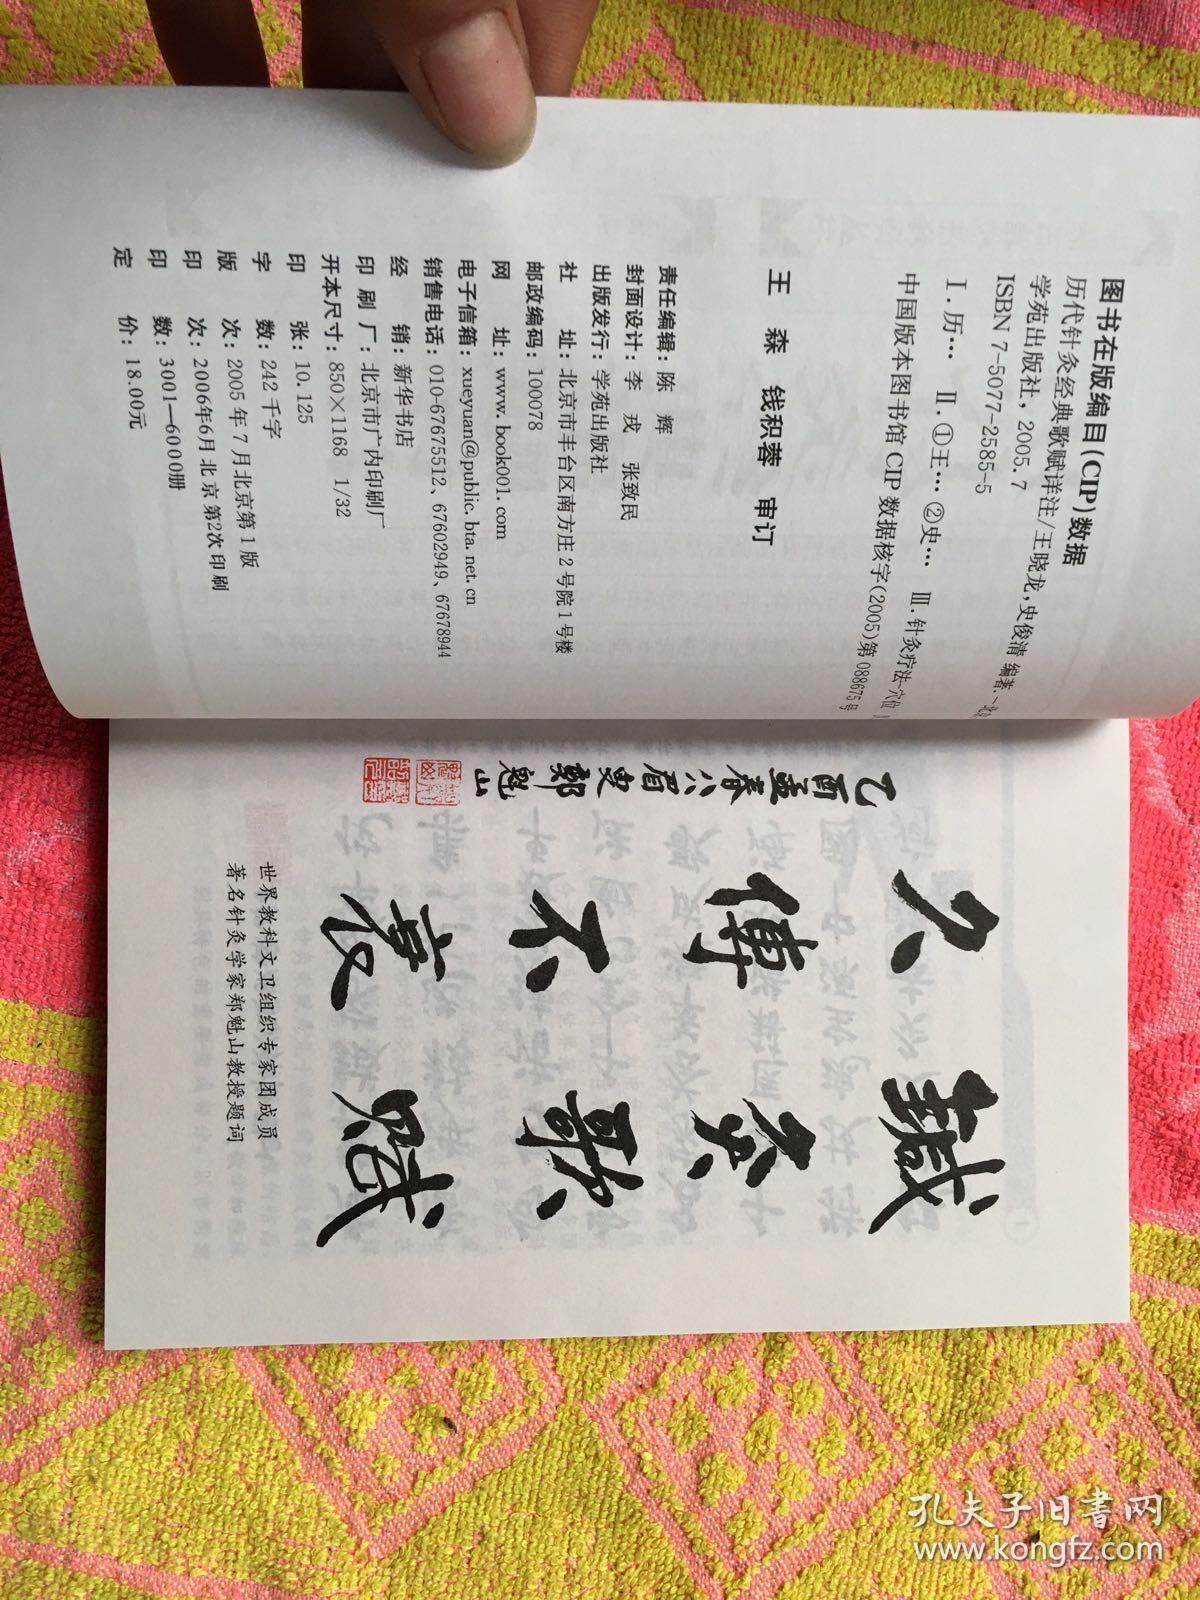 图书在版编目(CIP)数据
历代针灸经典歌赋详注/王晓龙,史俊清 编著.—北京
学苑出版社,2005.7
ISBN 7-5077-2585-5
Ⅰ.历… Ⅱ.①王…②史… Ⅲ.针灸疗法-穴位
中国版本图书馆CIP数据核字(2005)第088675号
王 森 钱积蓉 审订
责任编辑:陈 辉
封面设计:李 戎 张致民
出版发行:学苑出版社
社 址:北京市丰台区南方庄2号院1号楼
邮政编码:100078
网 址:www.book001.com
电子信箱:xueyuan@public.bta.net.cn
销售电话:010-67675512、67602949、67678944
经 销:新华书店
印 刷 厂:北京市广内印刷厂
开本尺寸:850×1168 1/32
印 张:10.125
字 数:242千字
版 次:2005年7月北京第1版
印 次:2006年6月北京第2次印刷
印 数:3001—6000册
定 价:18.00元
乙酉孟春八眉叟郑魁山
久傳不衰
鍼灸歌赋
世界教科文卫组织专家团成员
著名针灸学家郑魁山教授题词
孔夫子旧书网
www.kongfz.com